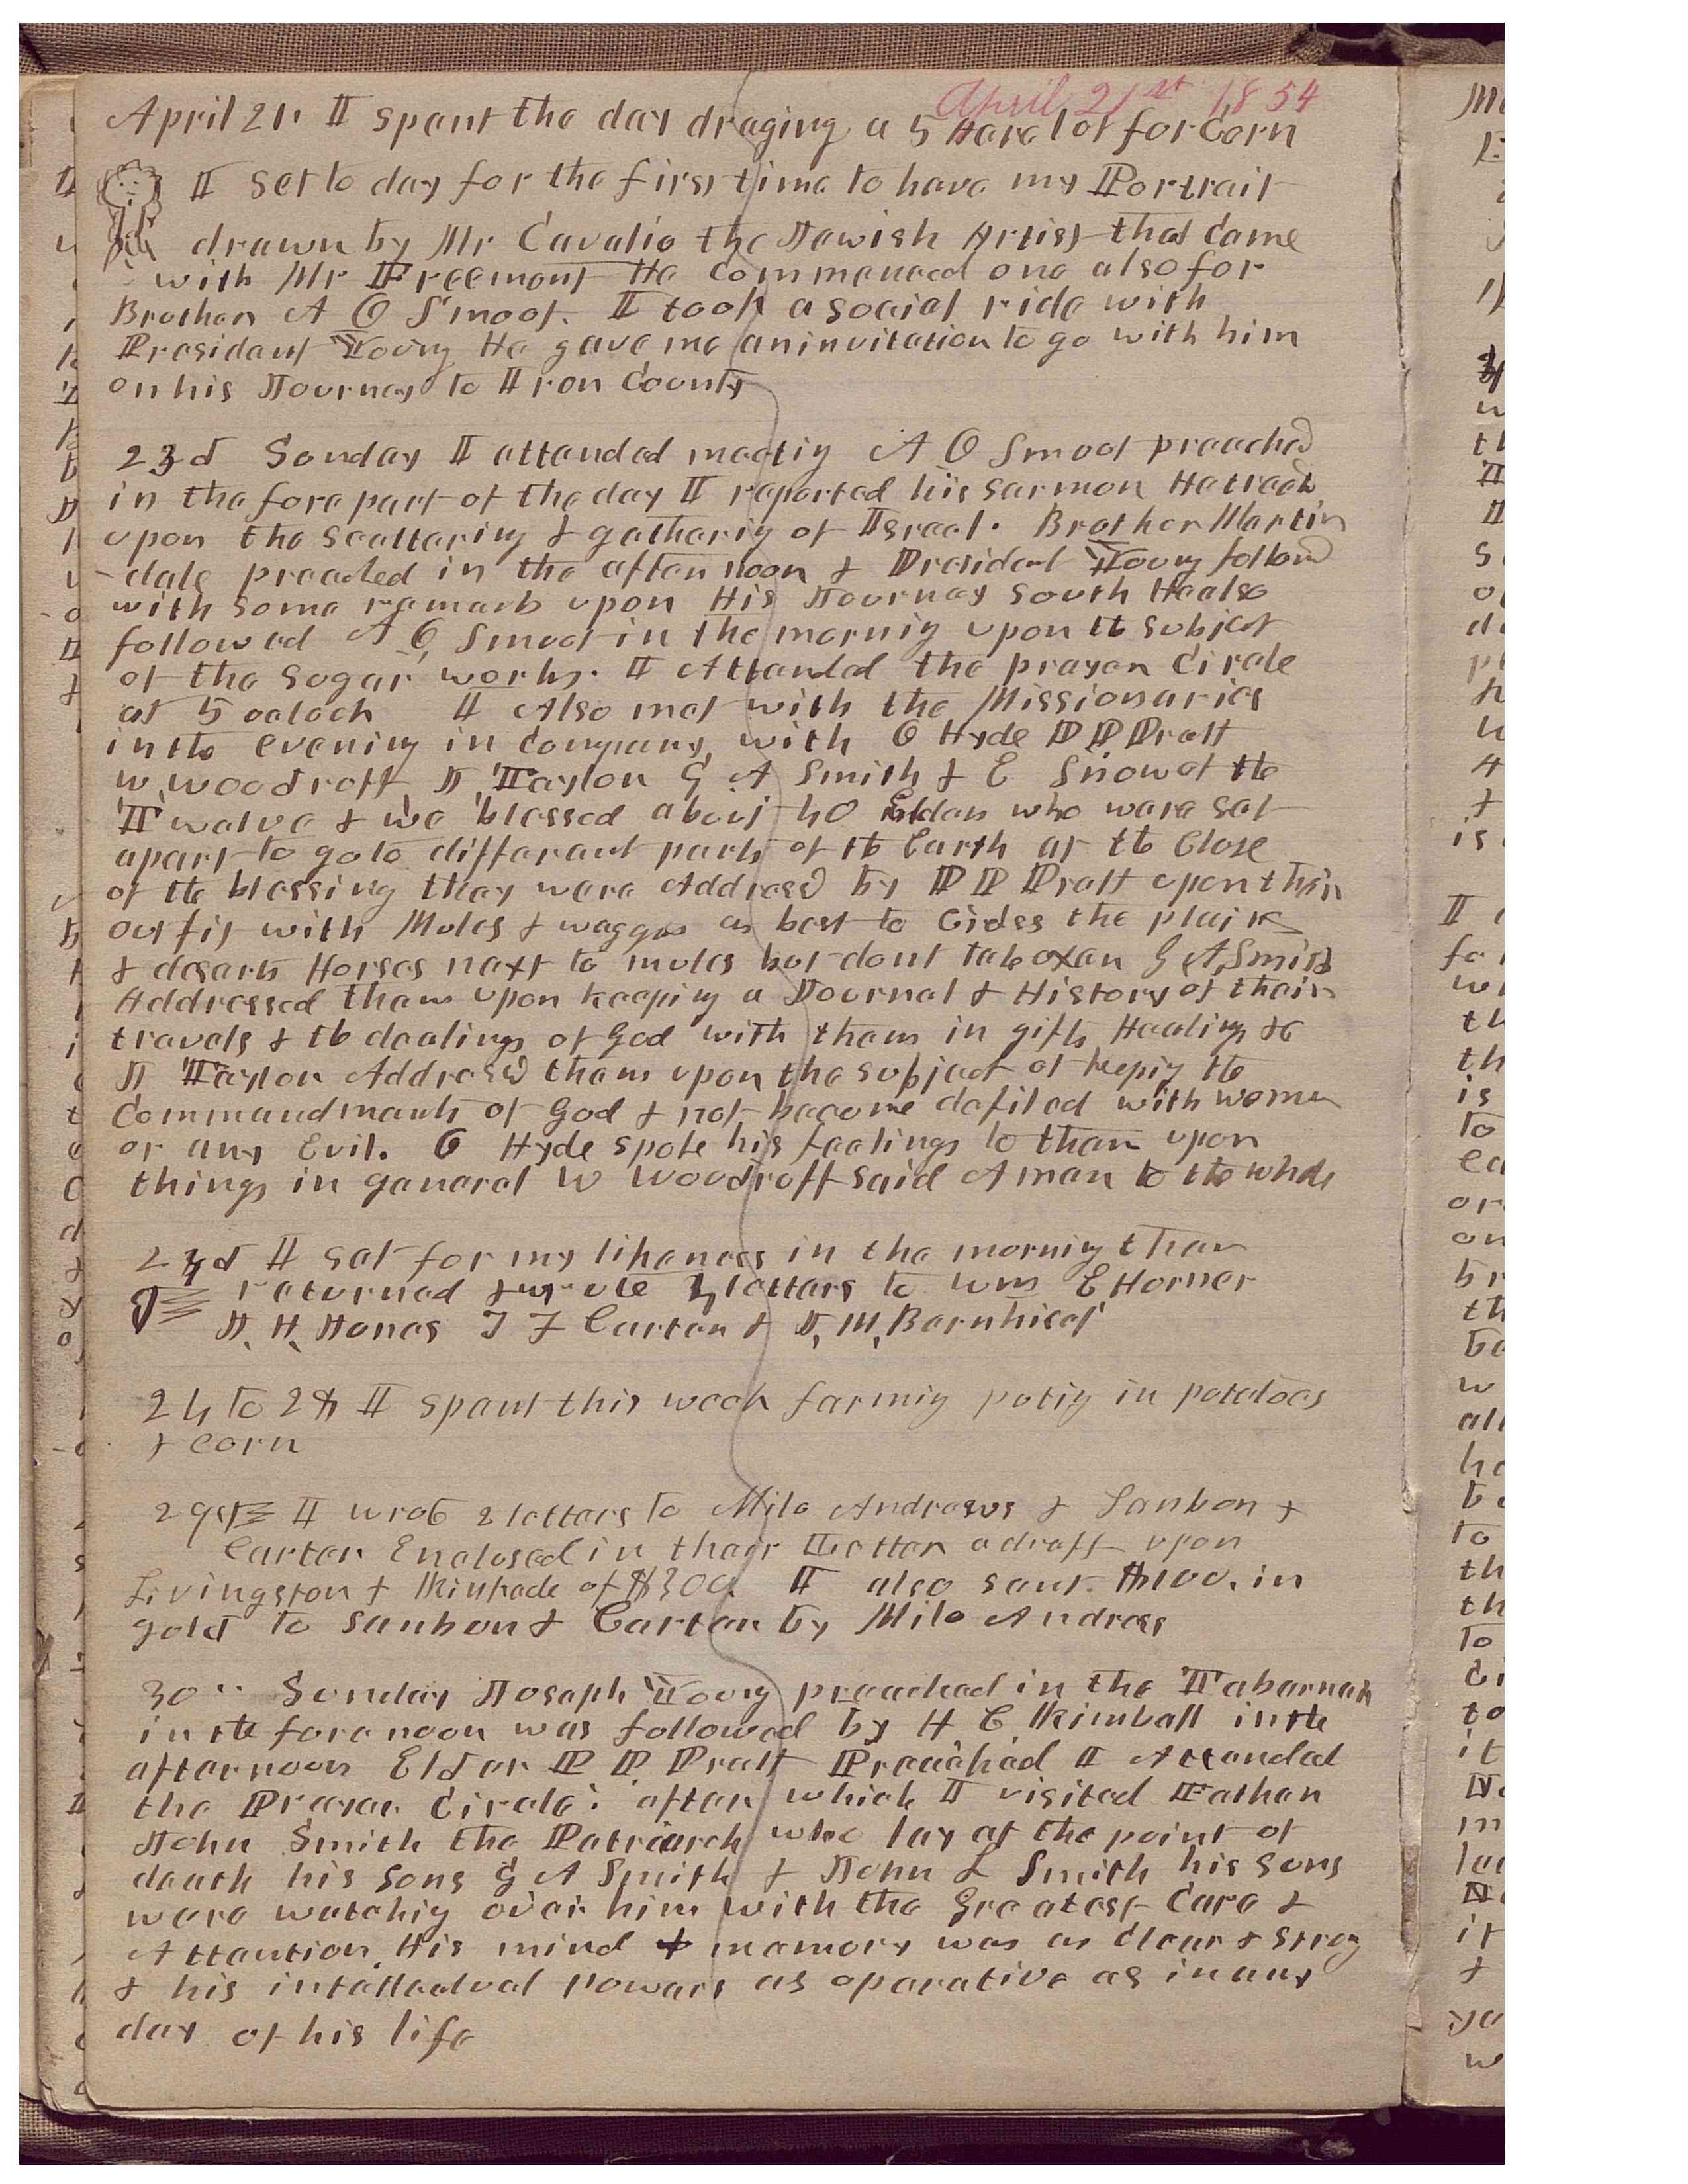 April 21st 1854
April 21. I spent the day draging a 5 Acre lot for Corn
I set to day for the first time to have my Portrait
drawn by Mr Cavalio the Jewish Artist that Came
with Mr Freemont He commenced one also for
Brother A O Smoot. I took a social ride with
President Young He gave me an invitation to go with him
on his Journey to Iron County
23d Sunday I attended meetig A O Smoot preached
in the fore part of the day I reported his sermon He treatd
upon the scattering & gatherig of Israel. Brother Martin
-dale preached in the afternoon & President Young followd
with some remarks upon His Journey South He also
followed A O Smoot in the mornig upon the subject
of the sugar works. I Attended the prayer Circle
at 5 oclock I Also met with the Missionaries
in the evening in Company with O Hyde P P Pratt
W. Woodruff J. Taylor G A Smith & E Snow of the
Twelve & we blessed about 40 Elders who were set
apart to go to different parts of the Earth at the Close
of the blessing they were Addressd by P P Pratt upon their
out fit with Mules & waggons as best to Cross the plains
& deserts Horses next to mules but dont take oxen G A Smith
Addressed them upon keeping a Journal & History of their
travels & the dealings of God with them in gifts Healings &c
J Taylor Addressd them upon the subject of keepig the
Commandments of God & not become defiled with women
or any Evil. O Hyde spoke his feelings to them upon
things in general W Woodruff said Amen to the whole
24d I sat for my likeness in the mornig then
returned & wrote 4 letters to Wm E Horner
J. H. Jones I F Carter & J. M. Barnhisel
24 to 28 I spent this week farmig putig in potatoes
& corn
29th I wrote 2 letters to Milo Andrews & Sanbon &
Carter Enclosed in their Letter a draft upon
Livingston & Kinkade of $300. I also sent $100. in
gold to Sanbon & Carter by Milo Andress
30" Sunday Joseph Young preached in the Tabernah
in the fore noon was followed by H C Kimball in the
afternoon Elder P P Pratt Preached I Attended
the Prayer Circle. after which I visited Father
John Smith the Patriarch who lay at the point of
death his sons G A Smith & John L Smith his sons
were watchig over him with the Greatest Care &
Attention His mind & memory was as clear & strog
& his intellectual powers as operative as in any
day of his life